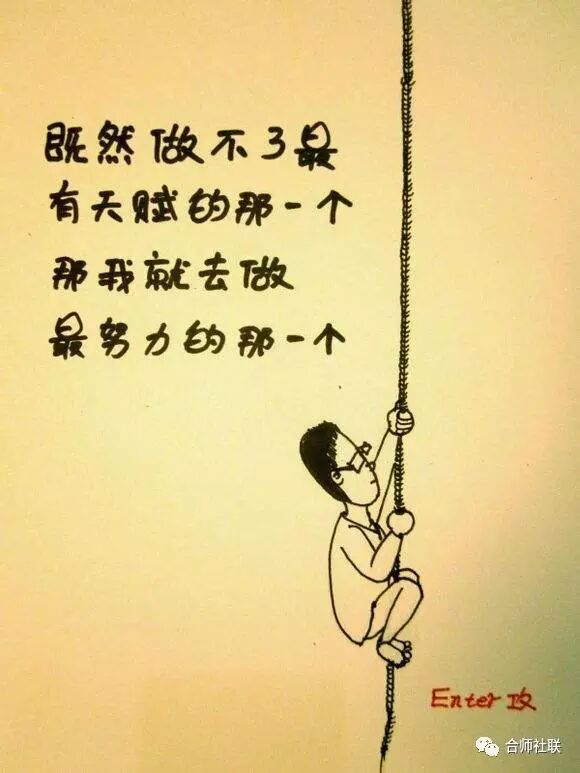 既然做不了最
有天赋的那一个
那我就去做
最努力的那一个
Enter攻
合师社联